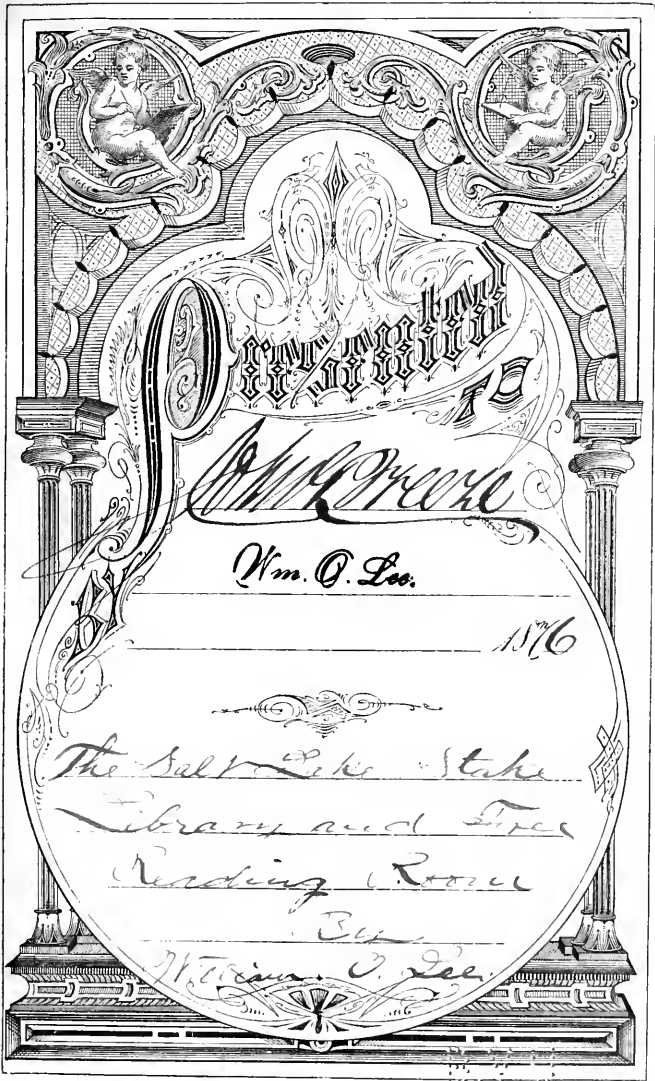 Presented
TO
John Greene
By
Wm. O. Lee.
1876
The Salt Lake Stake
Library and Free
Reading Room
By
William O. Lee.